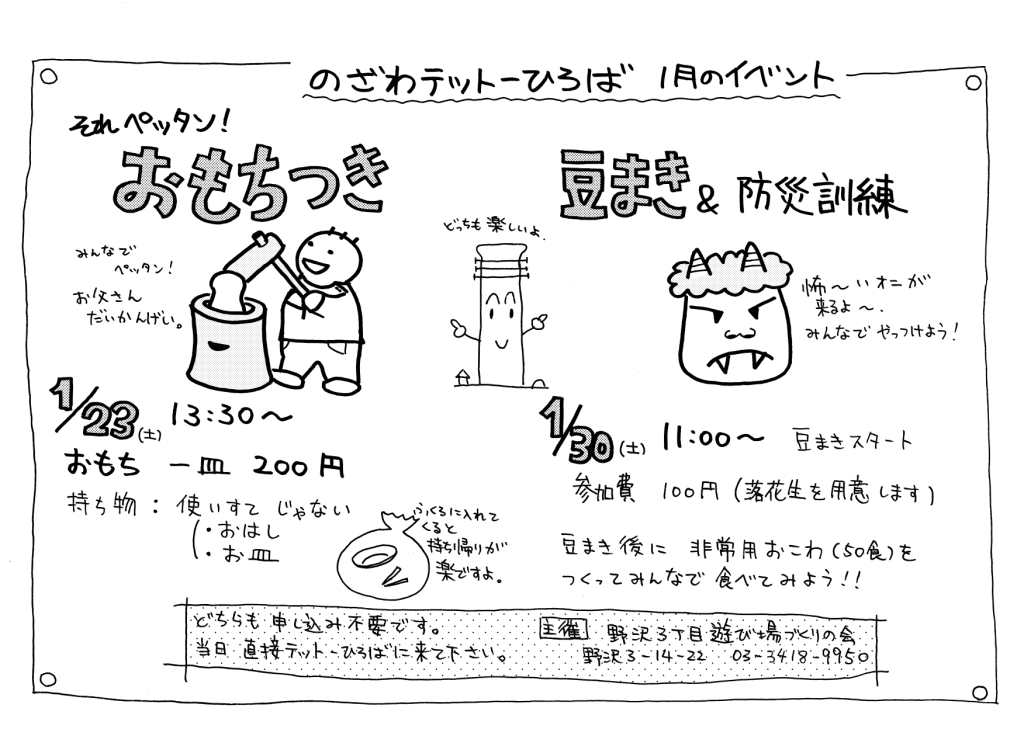 のざわテットーひろば 1月のイベント
それペッタン!
おもちつき
みんなで
ペッタン!
お父さん
だいかんげい。
1/23(土) 13:30〜
おもち 一皿 200円
持ち物: 使いすて じゃない
・おはし
・お皿
ふくろに入れて
くると
持ち帰りが
楽ですよ。
どっちも楽しいよ.
豆まき & 防災訓練
怖〜いオニが
来るよ〜.
みんなで やっつけよう!
1/30(土) 11:00〜 豆まきスタート
参加費 100円(落花生を用意します)
豆まき後に 非常用おこわ(50食)を
つくってみんなで 食べてみよう!!
どちらも 申し込み不要です。
当日 直接テットーひろばに来て下さい。
主催 野沢3丁目遊び場づくりの会
野沢3-14-22 03-3418-9950